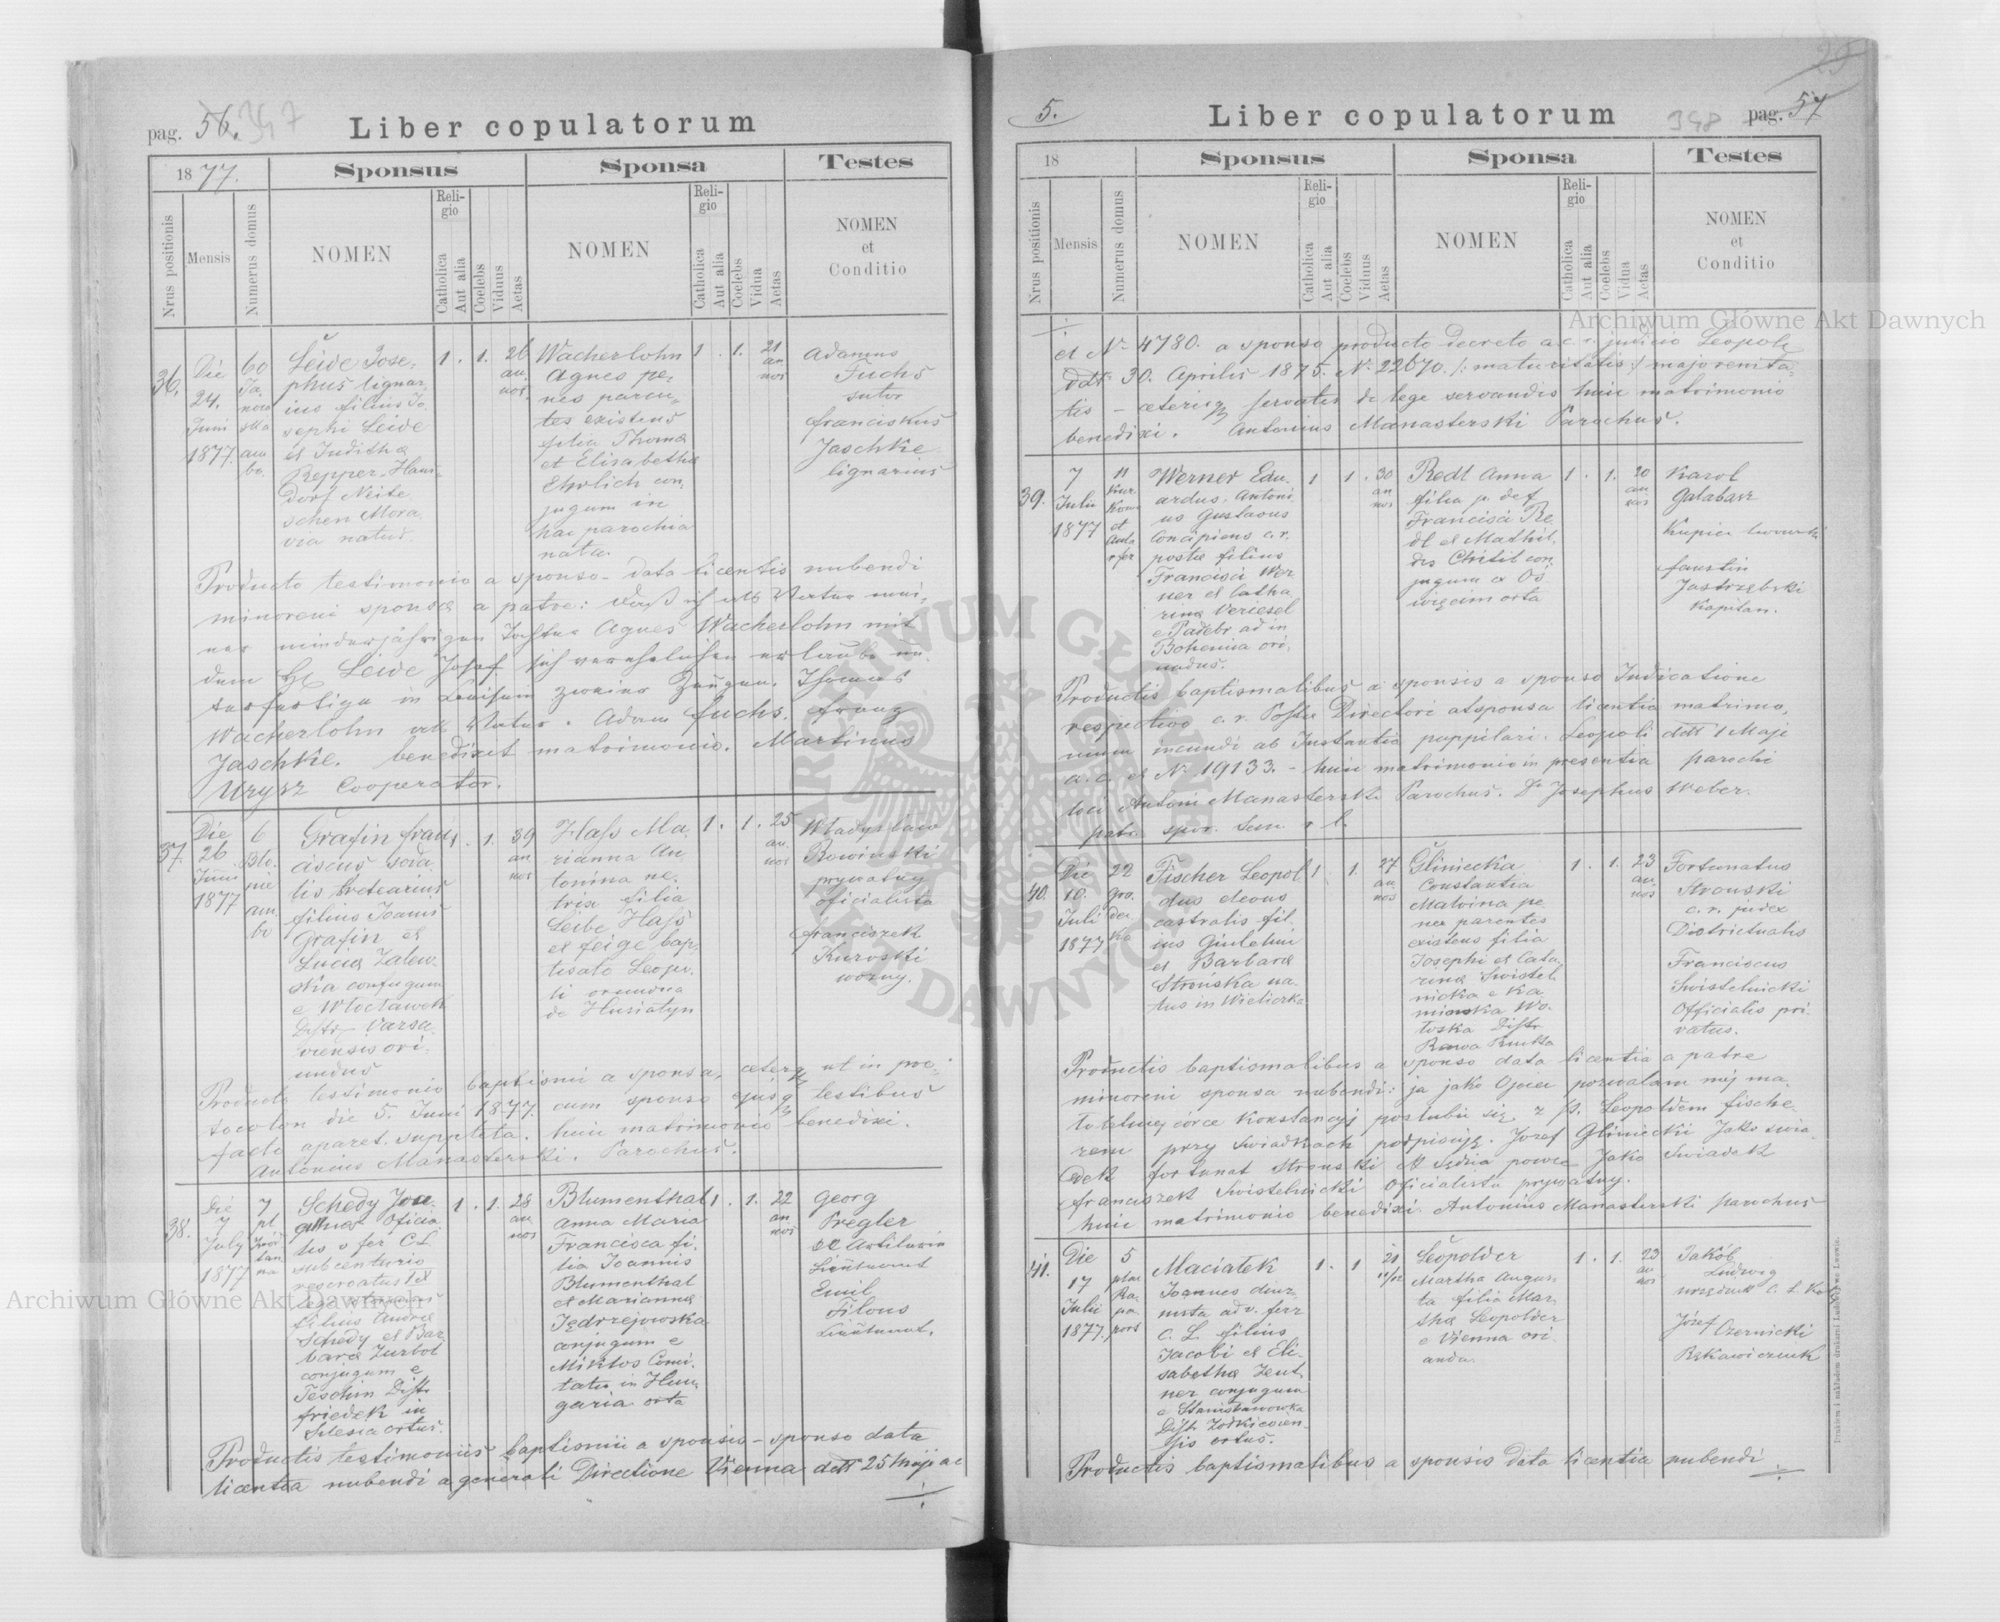 pag. 56. 347
Liber copulatorum
1877.
Sponsus
Sponsa
Testes
Nrus positionis
Mensis
Numerus domus
NOMEN
Religio
Catholica
Aut alia
Coelebs
Viduus
Aetas
NOMEN
Religio
Catholica
Aut alia
Coelebs
Vidua
Aetas
NOMEN
et
Conditio
36.
Die
24.
Juni
1877.
60
Ja-
now
ska
am
bo.
Leide Jose-
phus lignar-
ius filius Jo-
sephi Leide
et Juditha
Repper-Haus-
dorf Neite
schen Mora-
via natus.
1. 1. 26
an-
nos.
Wacherlohn
Agnes pe-
nes paren-
tes existens
filia Thomæ
et Elisabethæ
Ehrlich con-
jugum in
hac parochia
nata.
1. 1. 21
an
nos
Adamus
Fuchs
sutor
Franciskus
Jaschke
lignarius
Producto testimonio a sponso - data licentis nubendi
minoreni sponsæ a patre: daß ich als Vater mei-
ner minderjährigen Tochter Agnes Wacherlohn mit
dem H Leide Josef sich verehelichen erlaube un-
terfertige in beisein zweier Zeugen. Thomas
Wacherlohn als Vater. Adam Fuchs. Franz
Jaschke. benedixit matrimonio. Martinus
Urysz Cooperator.
37.
Die
26
Junii
1877
6
Blo-
nie
am-
bo
Grafin Fran-
ciscus soda-
lis bretearius
filius Joanis
Grafin et
Lucia Zalew-
skia conjugum
e Włocławek
Distr Varsa-
viensis ori-
undus
1. 1. 39
an
nos
Hass Ma-
rianna An-
tonina ne-
trix filia
Leibe Hass
et Feige bap-
tisato Leopo-
li oriundia
de Husiatyn
1. 1. 25
an-
nos
Władysław
Rowinski
prywatny
oficialista
Franciszek
Kurowski
woźny.
Producto testimonio baptismii a sponsa, ceterq ut in pro-
tocolon die 5. Juni 1877. cum sponso ejusq testibus
facto aparet. suppleta. huic matrimonio benedixi.
Antonius Manasterski. Parochus.
38.
Die
7
July
1877
7
pl
Schedy Jose-
phus Oficia-
lis v fer C.L.
subcenturio
reservatus
filius Andreæ
Schedy et Bar-
bara Zurbol
conjugum e
Teschin Distr
Friedek in
Silesia ortus.
1. 1. 28
an
nos
Blumenthal
Anna Maria
Francisca fi-
lia Joannis
Blumenthal
et Marianna
Jędrzejowska
conjugum e
Miktos Comi-
tatu in Hun-
garia orta
1. 1. 22
an
nos
Georg
Pregler
Artilerie
Lieutenant
Emil
Filous
Lieutenant.
Productis testimoniis baptismii a sponsis - sponso data
licentia nubendi a generali Directione Vienna dtt 25 Maji ac
5.
Liber copulatorum
348 pag. 57
18
Sponsus
Sponsa
Testes
Nrus positionis
Mensis
Numerus domus
NOMEN
Religio
Catholica
Aut alia
Coelebs
Viduus
Aetas
NOMEN
Religio
Catholica
Aut alia
Coelebs
Vidua
Aetas
NOMEN
et
Conditio
et N 4780. a sponso producto decreto a c. r. judicio Leopoli
ddt 30. Aprilis 1875. N. 22670. /: maturitatis :/ majorenita-
tis - ceterisq servatis de lege servandis huic matrimonio
benedixi. Antonius Manasterski Parochus.
39.
7
Julii
1877
11
Kur
Kow
et
Werner Edu-
ardus, Antoni-
us Gustavus
Concipiens c.r.
posta filius
Francisci Wer-
ner et Catha-
rina Veriesel
e Padebr ad in
Bohemia ori-
undus.
1 1. 30
an
nos
Redl Anna
filia p. def
Francisci Re-
dl et Mathil-
dis Chitil con-
jugum ex Oś-
więcim orta
1. 1. 20
an
nos
Karol
Galabarz
Kupiec lwowski
Faustin
Jastrzębski
Kapitan.
Productis baptismalibus a sponsis a sponso Indicatione
respectivo c.r. Posta Directori a sponsa licentia matrimo-
nium ineundi ab Instantia puppilari. Leopoli dtt 1 Maji
a. c. et N 19133. - huic matrimonio in presentia parochi
loci Antoni Manasterski Parochus. Dr Josephus Weber.
patr. spir. Sem. r. l.
40.
Die
10.
Julii
1877
22
Gro-
dec-
ka
Fischer Leopol-
dus elevus
castralis fil-
ius Guilelmi
et Barbara
Strońska na-
tus in Wieliczka
1 1. 27
an
nos
Gliniecka
Constantia
Malvina pe-
nes parentes
existens filia
Josephi et Cata-
rina Swistel-
nicka e Ka-
mionka Wo-
łoska Distr
Rawa Ruska
1. 1. 23
an
nos
Fortunatus
Stronski
c. r. judex
Districtualis
Franciscus
Swistelnicki
Officialis pri-
vatus.
Productis baptismalibus a sponso data licentia a patre
minoreni sponsa nubendi: ja jako Ojciec pozwalam mej ma-
loletniej córce Konstancyi poslubic się z p. Leopoldem Fische-
rem przy świadkach podpisuję. Jozef Gliniecki Jako swia-
dek Fortunat Stronski Sędzia powia Jako Swiadek
Franciszek Swistelnicki Oficialista prywatny.
huic matrimonio benedixi. Antonius Manasterski parochus
41.
Die
17
Julii
1877.
5
plac
Maciałek
Joannes diur-
nista adv. ferr
C. L. filius
Jacobi et Eli-
sabethæ Zent-
ner conjugum
e Stanisławowka
Distr Żołkiewien-
sis ortus.
1. 1 21
11/12
Leopolder
Martha Augus-
ta filia Mar-
tha Leopolder
e Vienna ori-
anda.
1. 1. 23
an
nos
Jakób
Ludwig
urzędnik C. L. Kol
Józef Czernicki
Rękawicznik
Productis baptismalibus a sponsis data licentia nubendi
Drukiem i nakładem drukarni Ludowej we Lwowie.
Archiwum Główne Akt Dawnych
Archiwum Główne Akt Dawnych
ARCHIWUM GŁÓWNE AKT DAWNYCH